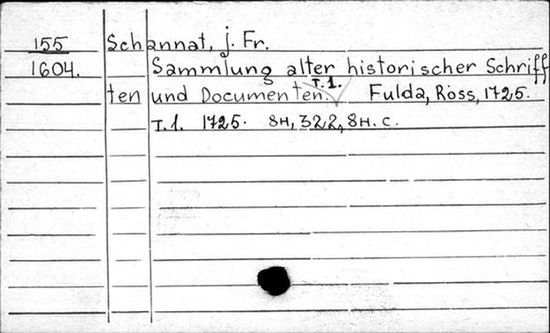 155 Schannat, j. Fr.
1604. Sammlung alter historischer Schriff
ten und Documenten. T.1. Fulda, Röss, 1725.
T.1. 1725. 8н, 322, 8н. с.